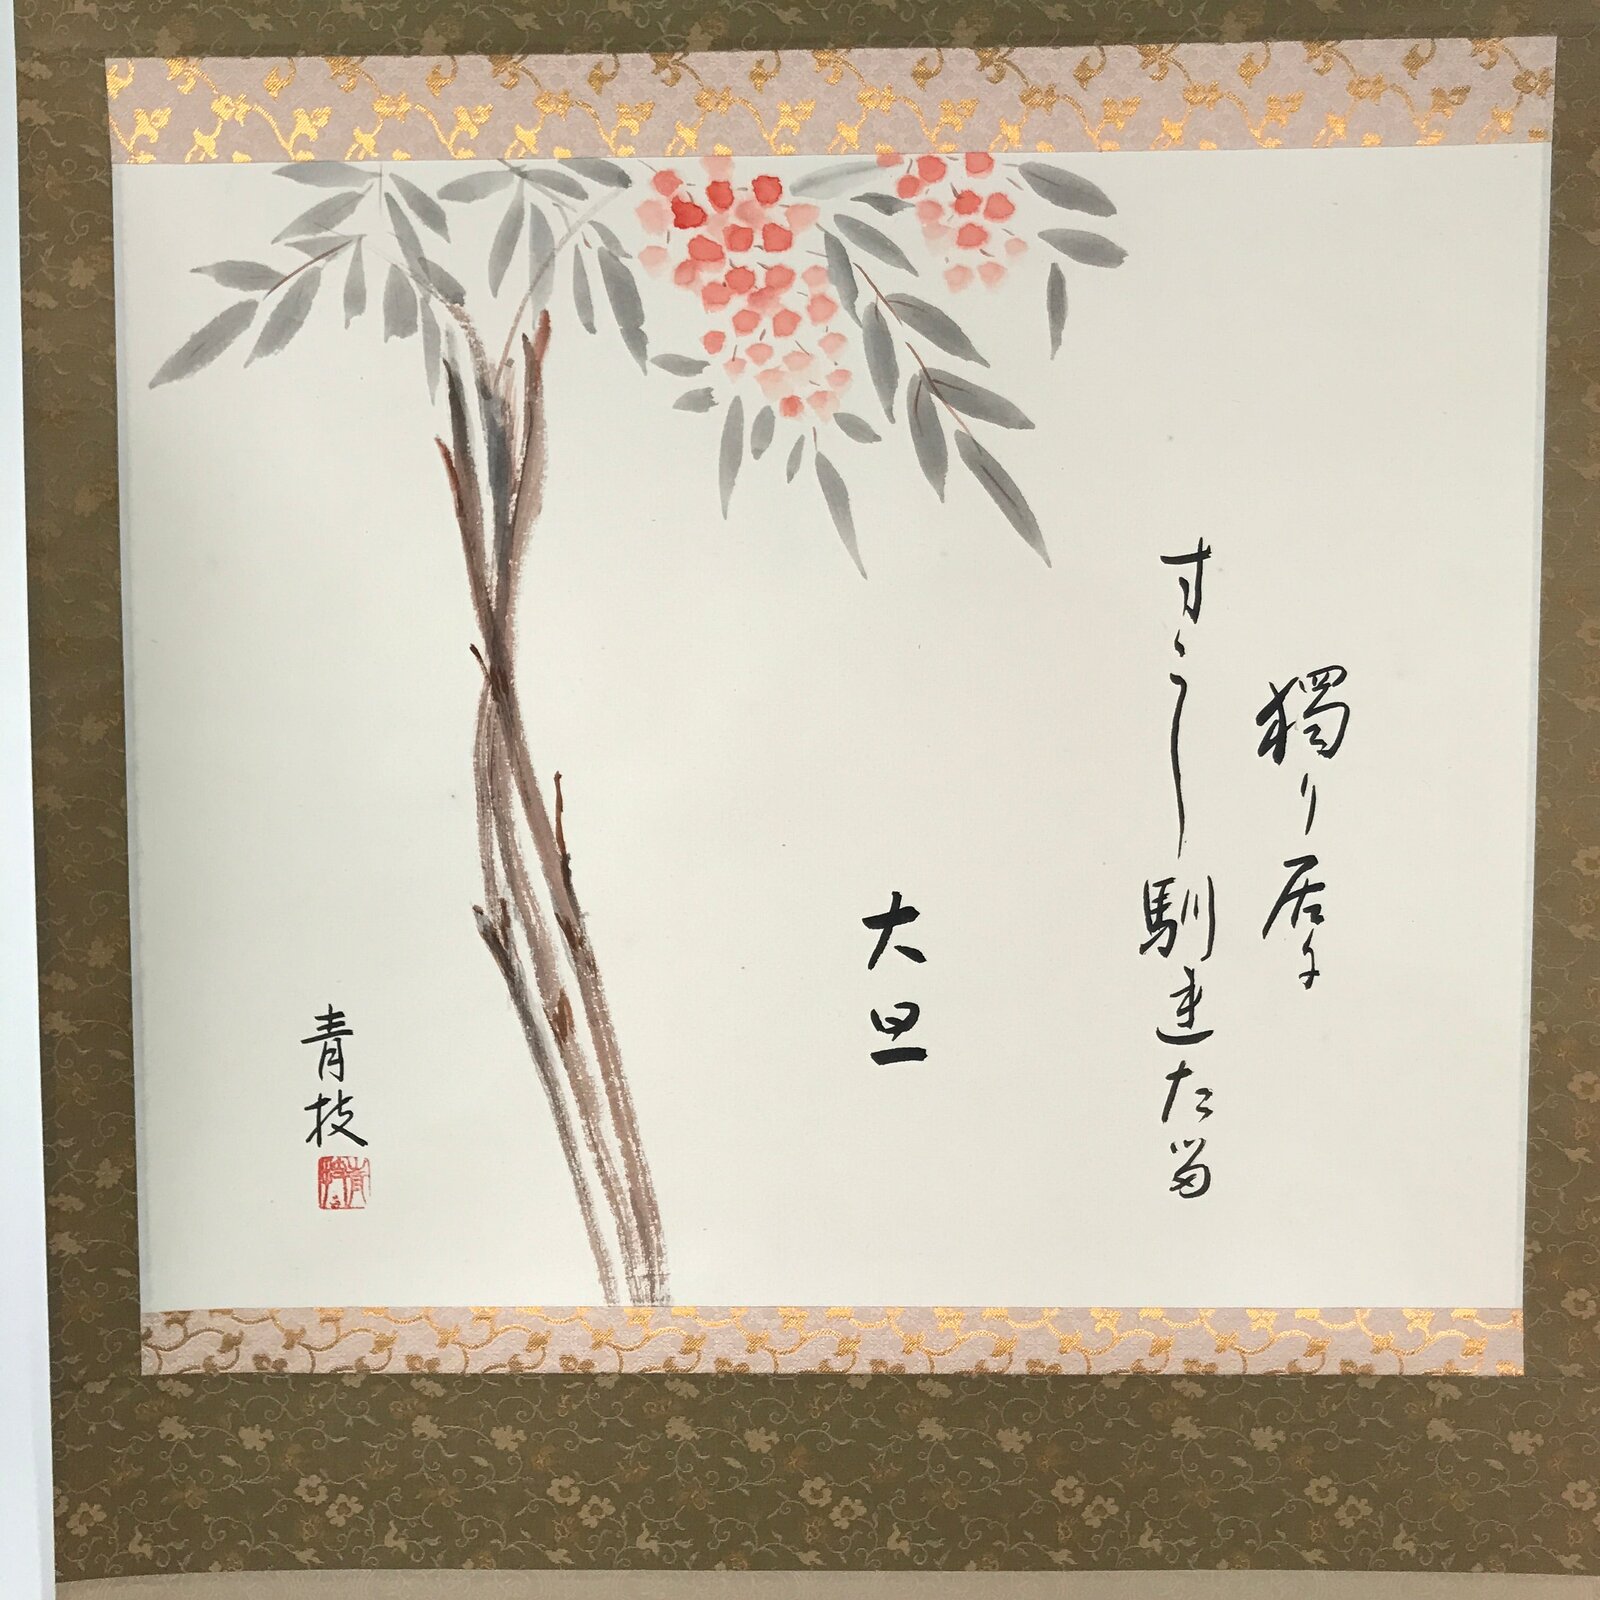 獨り居に
すこし馴連たる
大旦
青枝